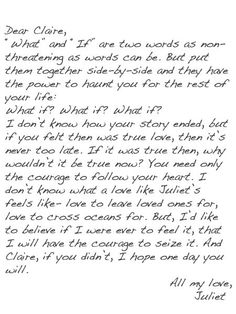 Dear Claire,
"What" and "If" are two words as non-
threatening as words can be. But put
them together side-by-side and they have
the power to haunt you for the rest of
your life:
What if? What if? What if?
I don't know how your story ended, but
if you felt then was true love, then it's
never too late. If it was true then, why
wouldn't it be true now? You need only
the courage to follow your heart. I
don't know what a love like Juliet's
feels like- love to leave loved ones for,
love to cross oceans for. But, I'd like
to believe if I were ever to feel it, that
I will have the courage to seize it. And
Claire, if you didn't, I hope one day you
will.
All my love,
Juliet